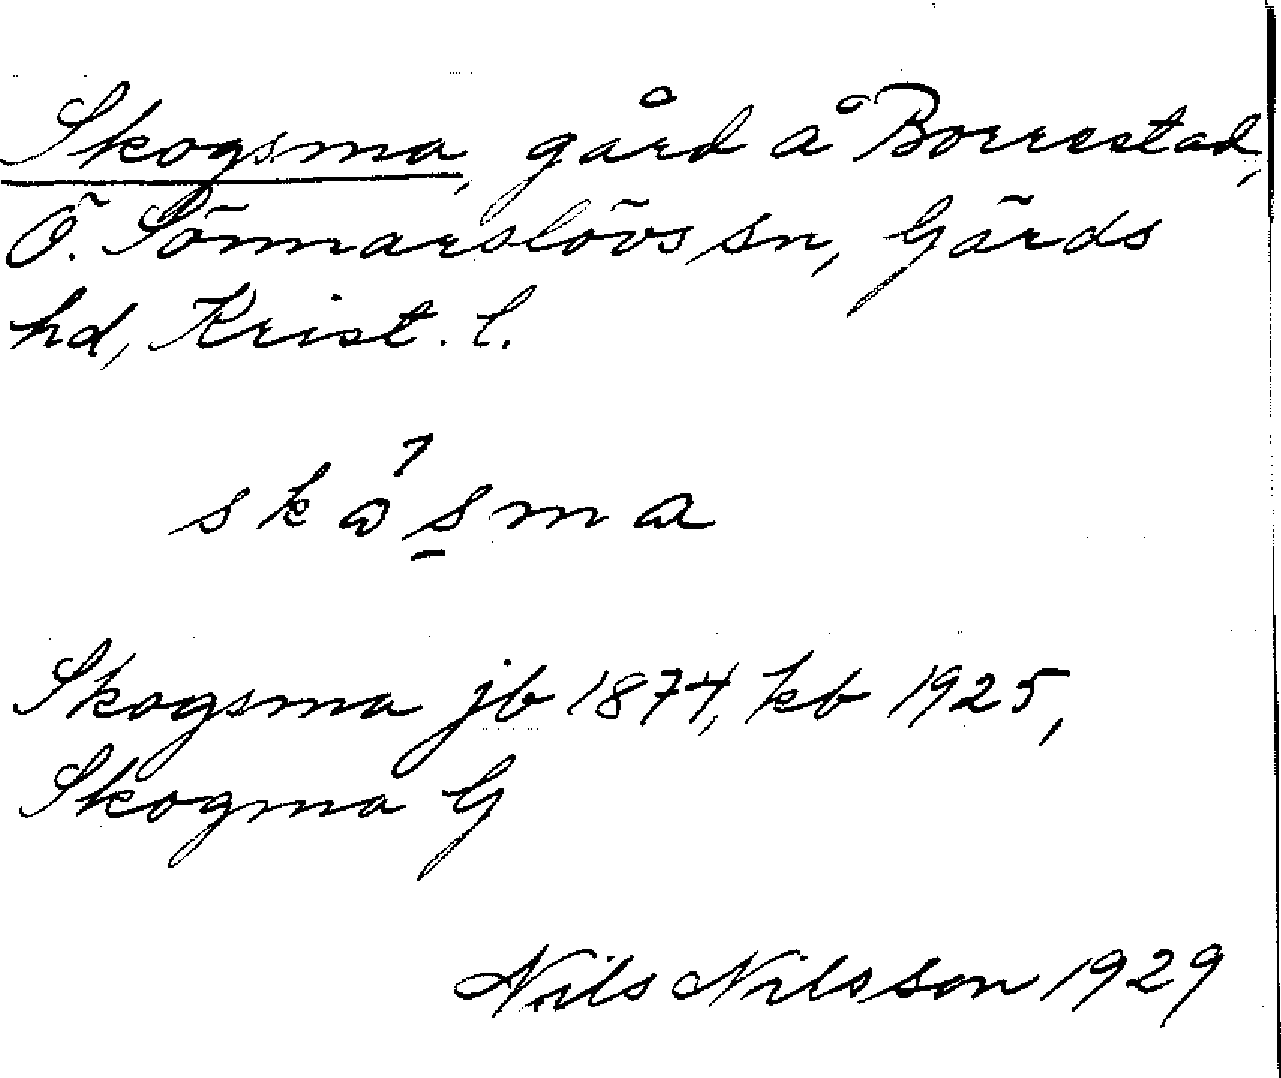 Skogsma, gård å Borrestad,
Ö. Sönnarslövs sn, Gärds
hd, Krist. l.
skɷ́s̱ma
Skogsma jb 1874, kb 1925,
Skogma G
Nils Nilsson 1929